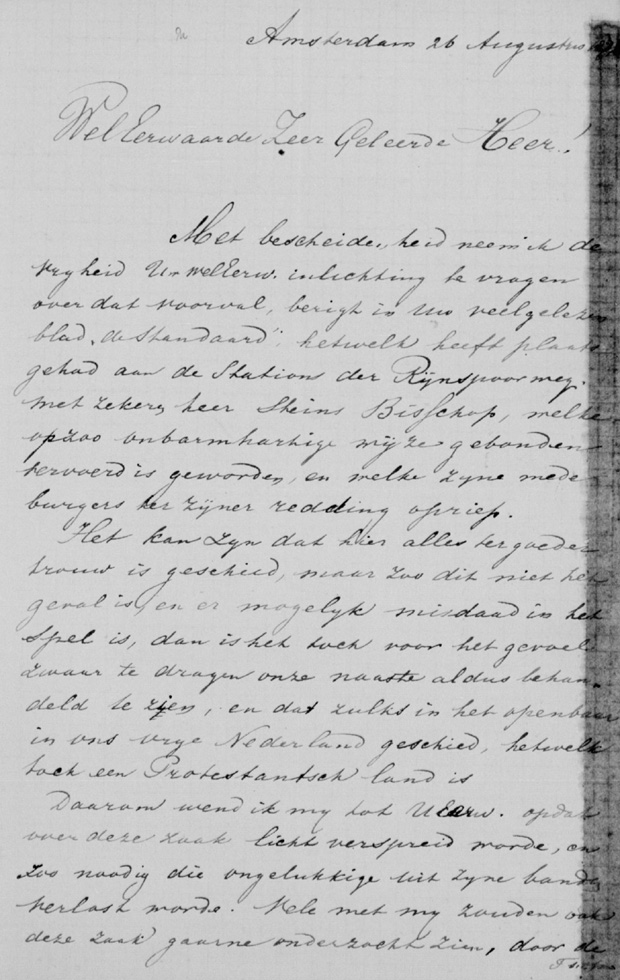 Amsterdam 26 Augustus
WelEerwaarde Zeer Geleerde Heer!
Met bescheidenheid neem ik de
vryheid Uw WelEerw. inlichting te vragen
over dat voorval, berigt in Uw veelgelezen
blad „de Standaard”, hetwelk heeft plaats
gehad aan de Stations der Rÿnspoorweg.
met zekeren heer Steins Bisschop, welke
op zoo onbarmhartige wÿze gebonden
vervoerd is geworden, en welke zyne mede
burgers ter zÿner redding opriep.
Het kan zyn dat hier alles ter goeder
trouw is geschied, maar zoo dit niet het
geval is, en er mogelyk misdaad in het
spel is, dan is het toch voor het gevoel
zwaar te dragen onze naaste aldus behan-
deld te zien, en dat zulks in het openbaar
in ons vrye Nederland geschied, hetwelk
toch een Protestantsch land is
Daarom wend ik my tot UEerw. opdat
over deze zaak licht verspreid worde, en
zoo noodig die ongelukkige uit zyne banden
verlost worde. Vele met my zouden ook
deze zaak gaarne onderzocht zien, door de